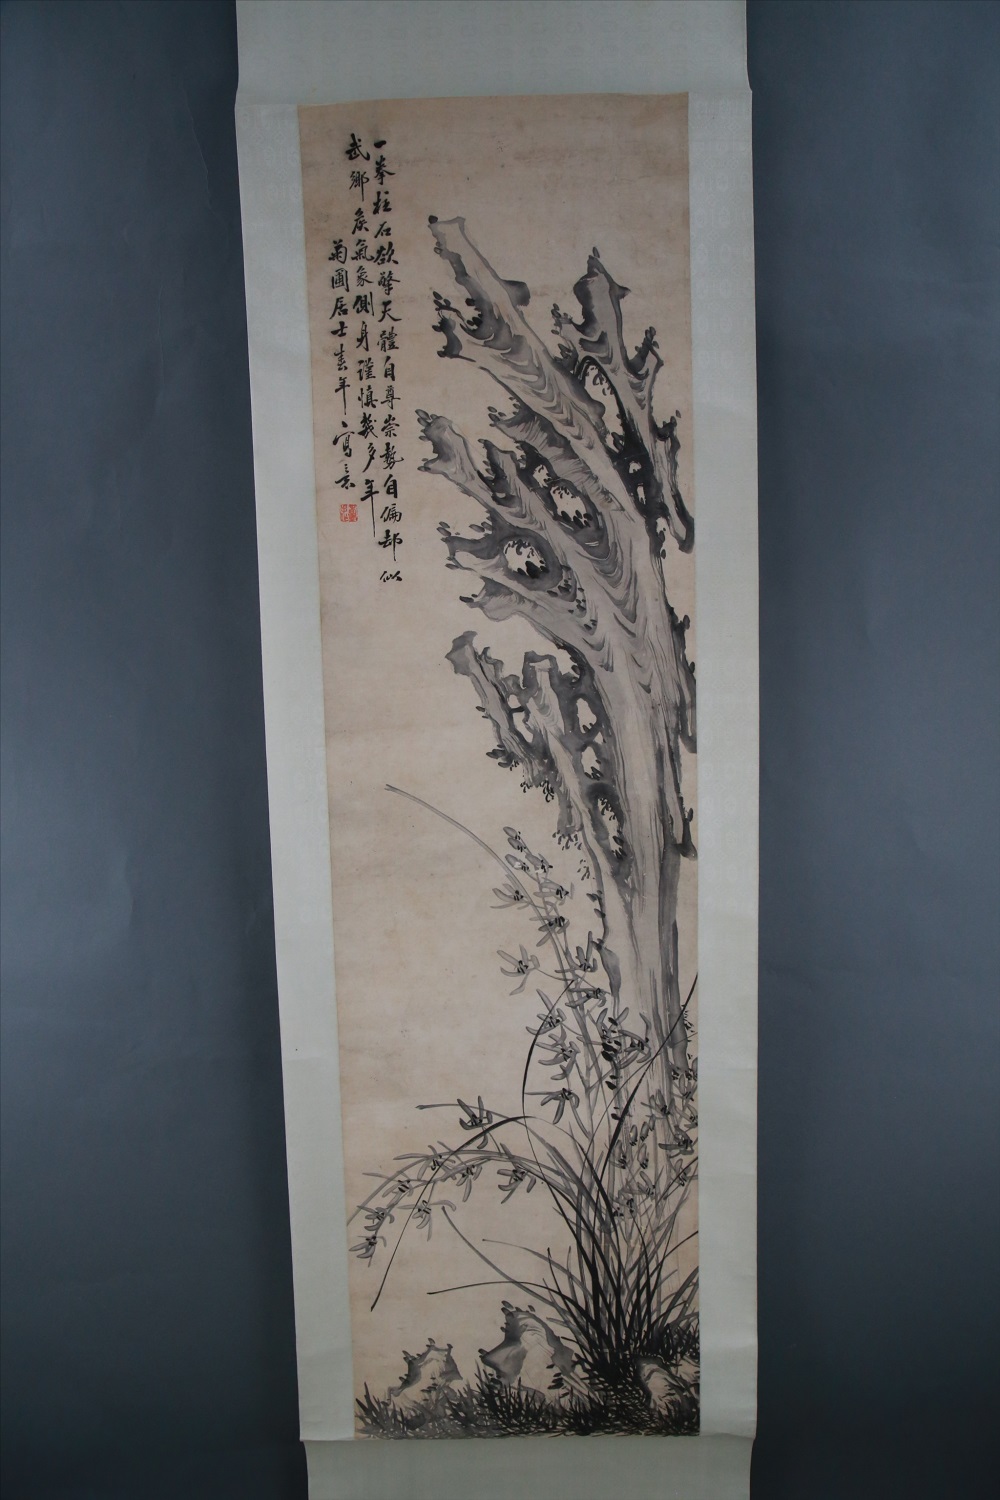 一拳柱石欲擎天體自尊崇勢自偏却似
武鄉侯氣象側身謹慎幾多年
菊圃居士壽年寫意